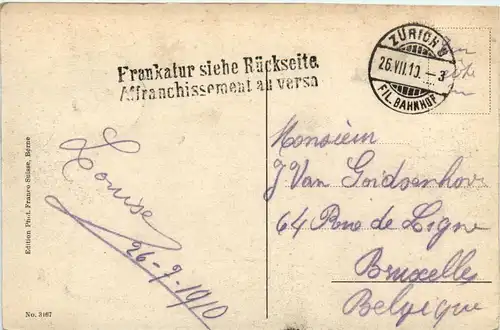 Frankatur siehe Rückseite.
Affranchissement au verso
ZÜRICH
26.VII.10.–3
FIL. BAHNHOF
Louise
26-7-1910
Monsieur
J Van Goidsenhoven
64 Rue de Ligne
Bruxelles
Belgique
Edition Phot. Franco-Suisse, Berne
No. 3167